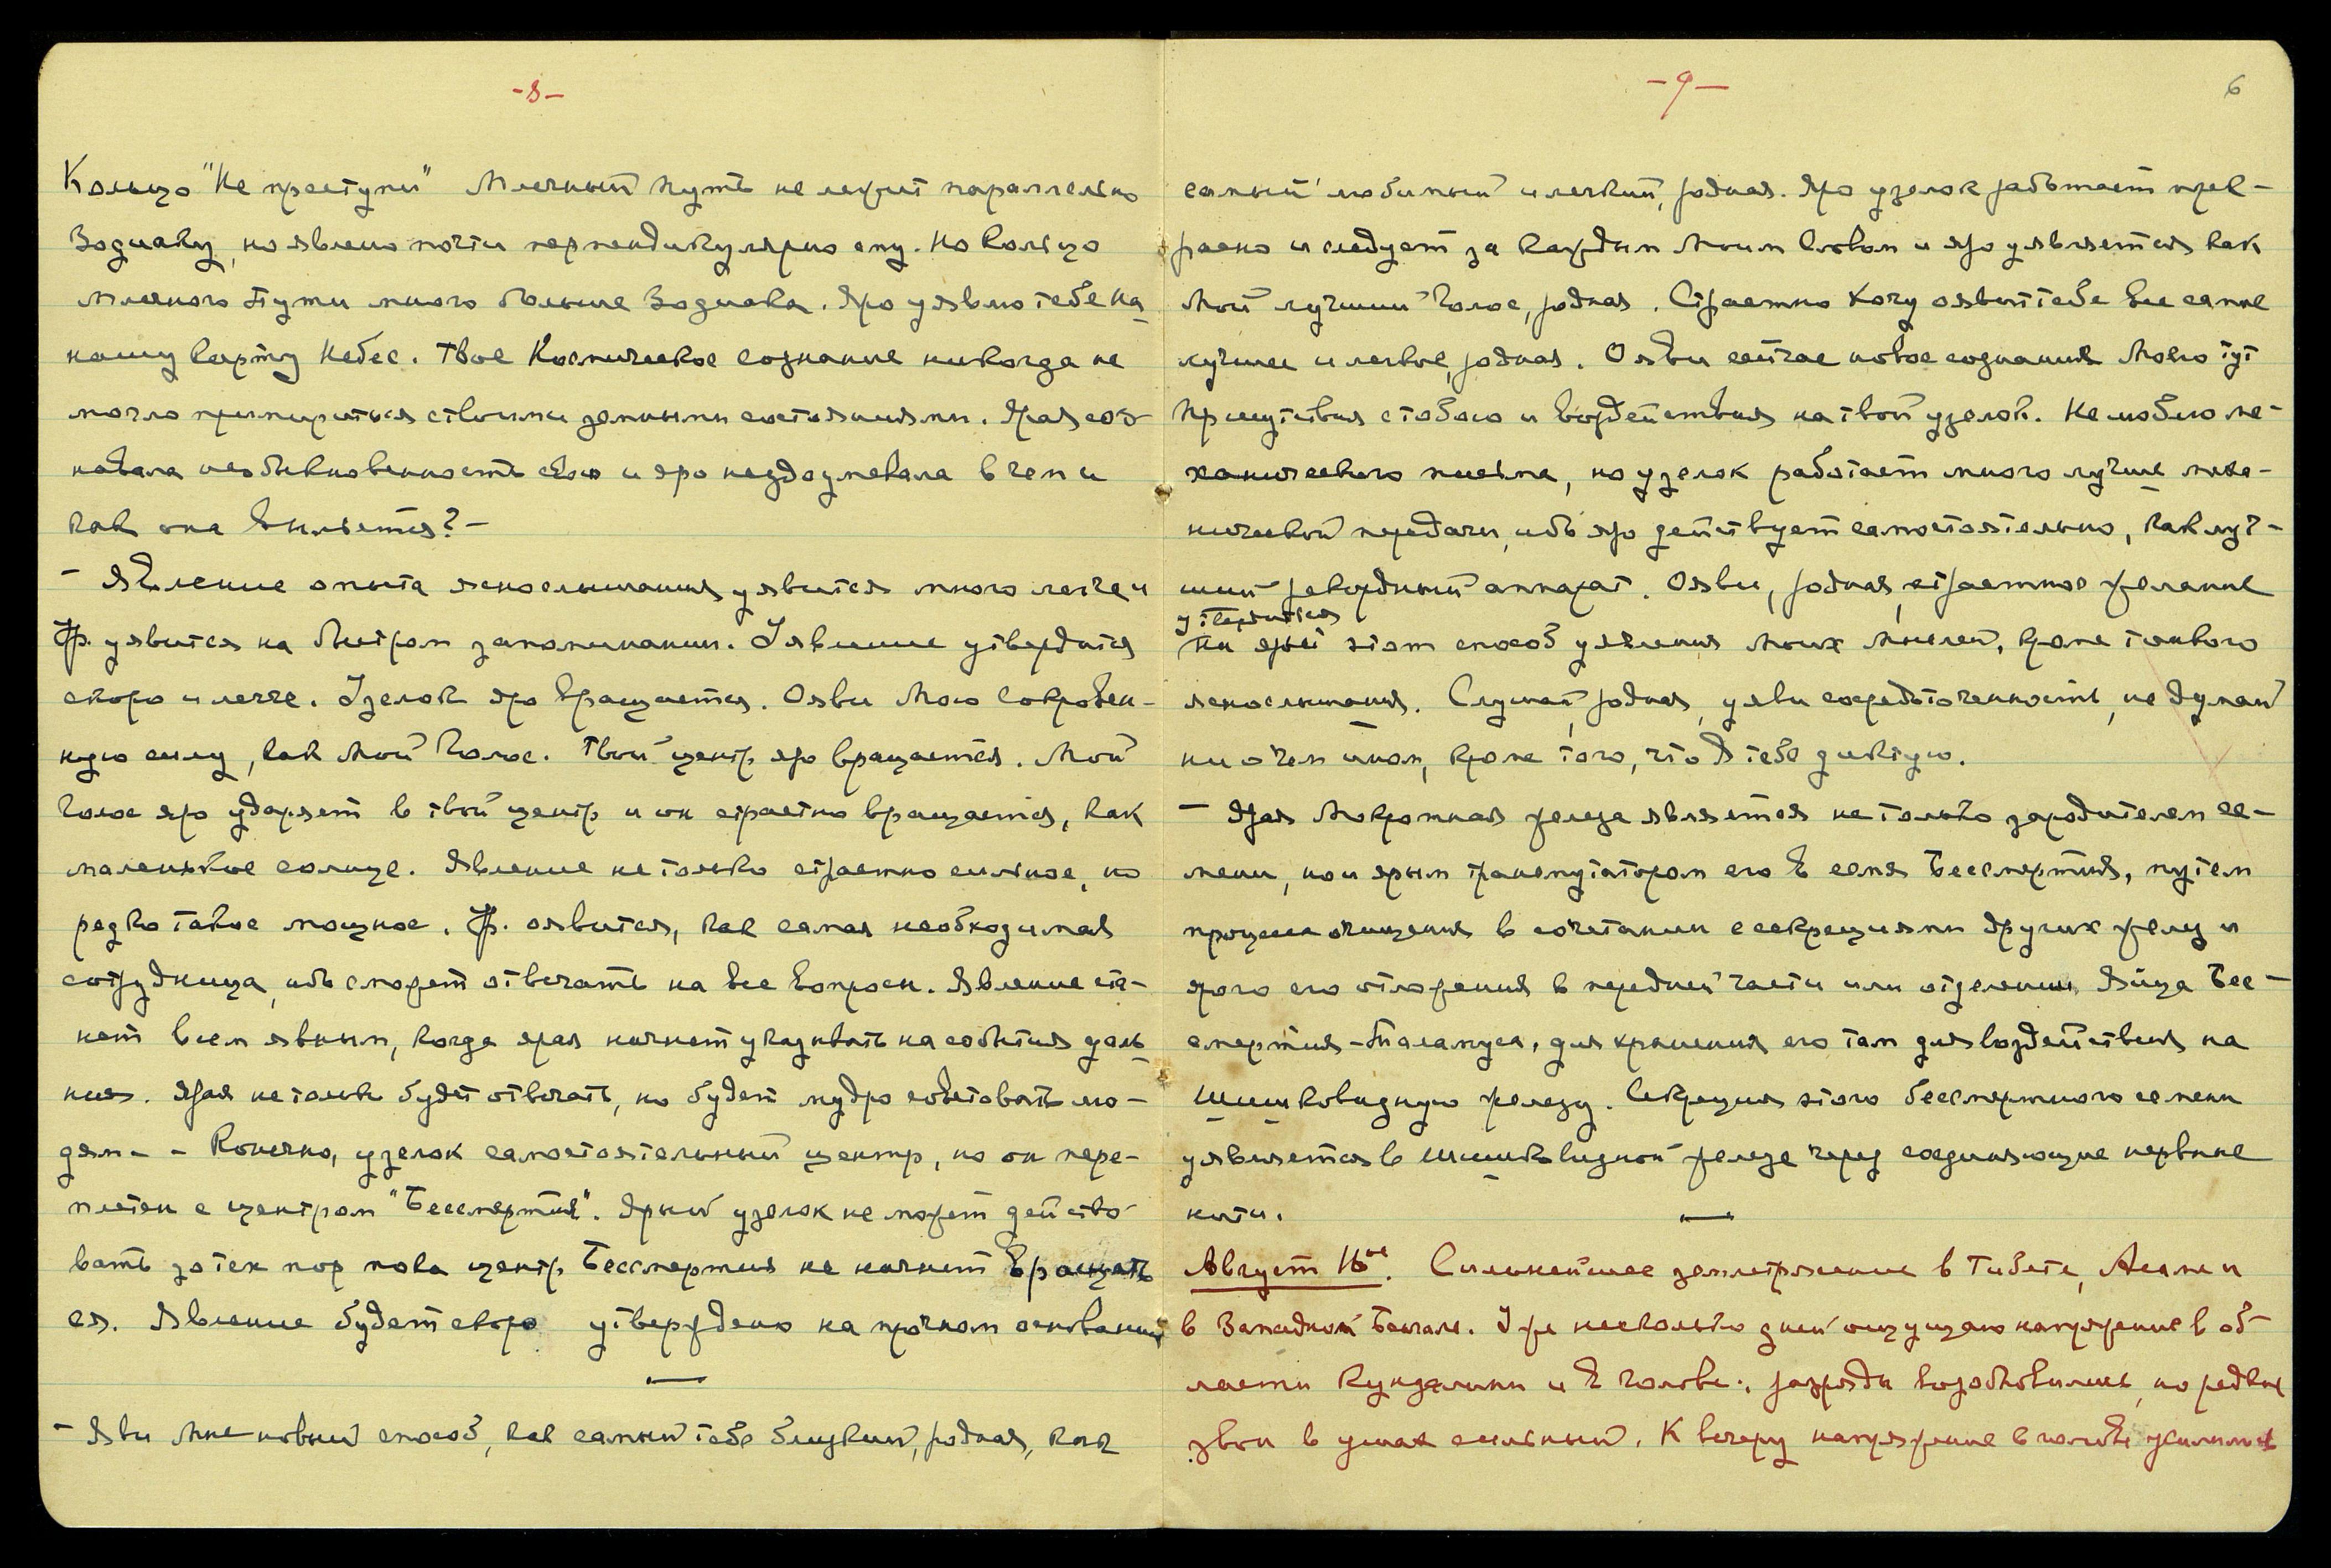 -8-
Кольцо "Не преступи" Млечный Путь не лежит параллельно
Зодиаку, но явлено почти перпендикулярно ему. Но Кольцо
Млечного Пути много больше Зодиака. Яро уявлю тебе На
нашу карту Небес. Твое Космическое сознание никогда не
могло примириться с твоими земными состояниями. Ярая соз-
навала необыкновенность свою и яро недоумевала в чем и
как она выльется? -
- Явление опыта яснослышания уявится много легче и
Ур. уявится на быстром запоминании. Уявление утвердится
скоро и легче. Узелок яро вращается. Ояви Мою Сокровен-
ную силу, как Мой Голос. Твой центр яро вращается. Мой
Голос яро ударяет в твой центр и он страстно вращается, как
маленькое солнце. Явление не только страстно сильное, но
редко такое мощное. Ур. оявится, как самая необходимая
сотрудница, ибо сможет отвечать на все вопросы. Явление ста-
нет всем явным, когда ярая начнет указывать на события даль
ния. Ярая не только будет отвечать, но будет мудро советовать лю-
дям - - Конечно, узелок самостоятельный центр, но он пере-
плетен с центром "Бессмертия". Ярый узелок не может действо-
вать до тех пор пока центр Бессмертия не начнет вращать
ся. Явление будет скоро утверждено на прочном основании
- Яви Мне новый способ, как самый тебе близкий, родная, как
-9-
6
самый любимый и легкий, родная. Яро узелок работает прек-
расно и следует за каждым Моим Словом и яро уявляется как
Мой лучший Голос, родная. Страстно хочу оявит тебе все самые
лучшее и легкое, родная. Ояви сейчас новое сознания Моего тут
Присутствия с тобою и воздействия на твой узелок. Не люблю ме-
ханического письма, но узелок работает много лучше меха-
нической передачи, ибо яро действует самостоятельно, как луч-
ший рекордный аппарат. Ояви, родная, страстное желание
утвердиться
на ярый этом способ уявления Моих Мыслей, кроме тонкого
яснослышания. Слушай, родная, уяви сосредоточенность, не думай
ни о чем ином, кроме того, что Я тебе диктую.
- Ярая Мокротная железа является не только зародителем се-
мени, но и ярым трансмутатором его в семя Бессмертия, путем
процесса очищения в сочетании с секрециями других желез и
ярого его отложения в передней части или отделении Яйца Бес-
смертия-Таламуса, для хранения его там для воздействия на
Шишковидную железу. Секреция этого бессмертного семени
уявляется в Шишковидной железе через соединяющие нервные
нити.
Август 16ое. Сильнейшее землетрясение в Тибете, Асаме и
в Западном Бенгале. Уже несколько дней ощущаю напряжение в об-
ласти Кундалини и в голове; разряды возобновились, но редкие
звон в ушах сильный. К вечеру напряжение в голове усилилось